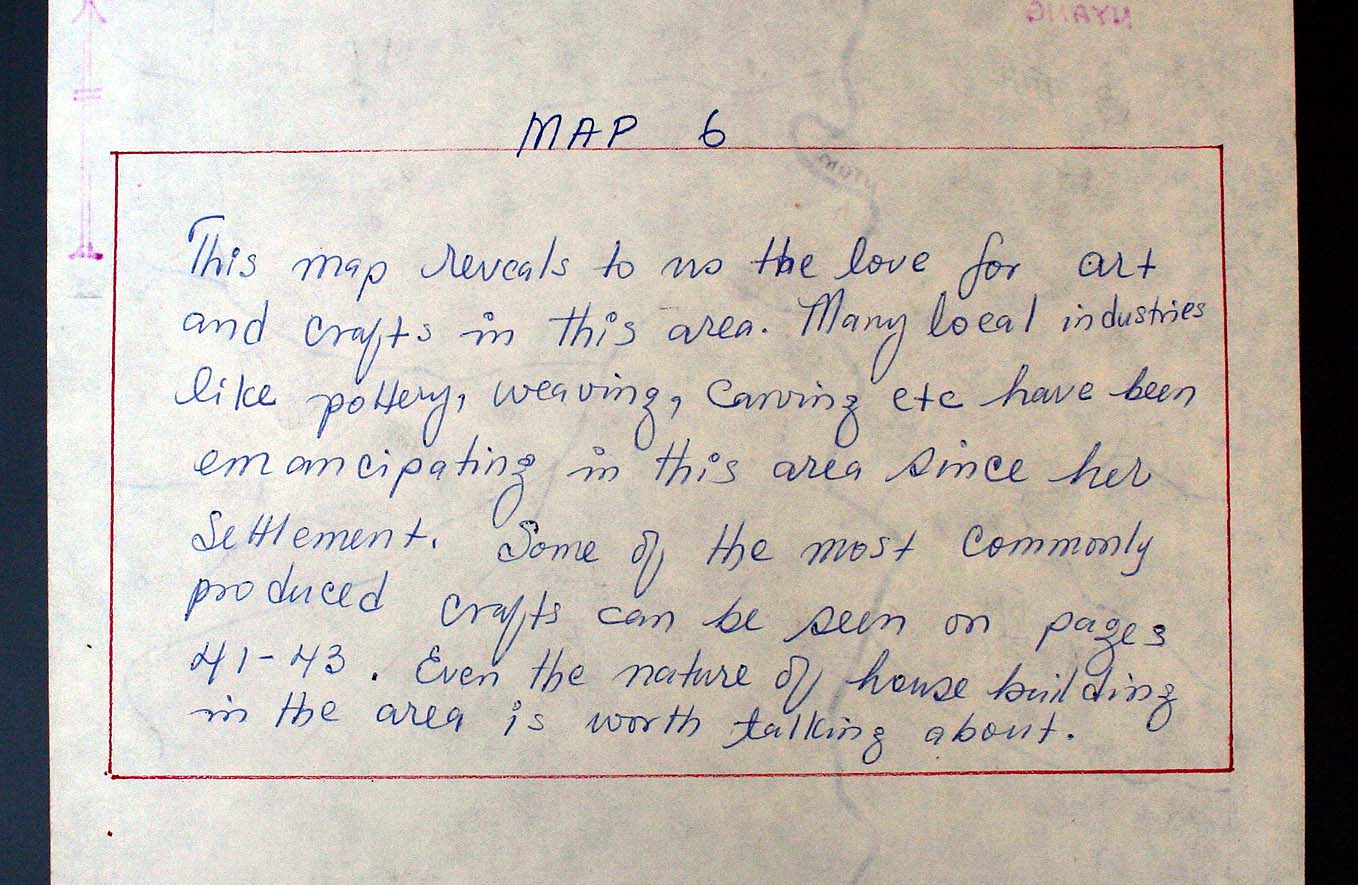 NYANG
MAP 6
This map reveals to us the love for art
and crafts in this area. Many local industries
like pottery, weaving, carving etc have been
emancipating in this area since her
settlement. Some of the most commonly
produced crafts can be seen on pages
41-43. Even the nature of house building
in the area is worth talking about.